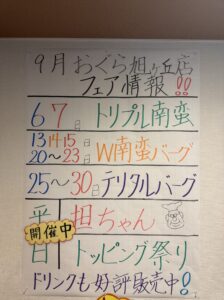 9月おぐら旭ヶ丘店
フェア情報!!
6 7日 トリプル南蛮
13 14 15日
20〜23日 W南蛮バーグ
25〜30日 テリタルバーグ
平日 開催中 担ちゃん
トッピング祭り
ドリンクも好評販売中!